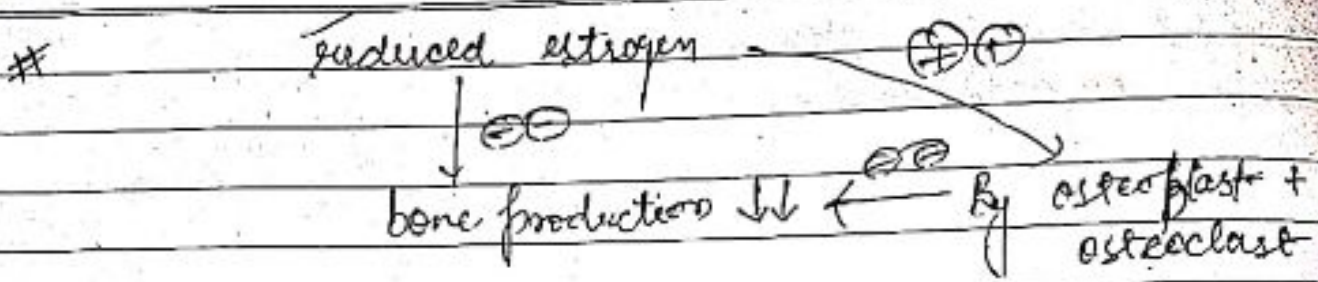 # reduced estrogen → ⊕⊕
↓ ⊖⊖
⊖⊖
bone production ↓↓ ← By osteoblast +
osteoclast